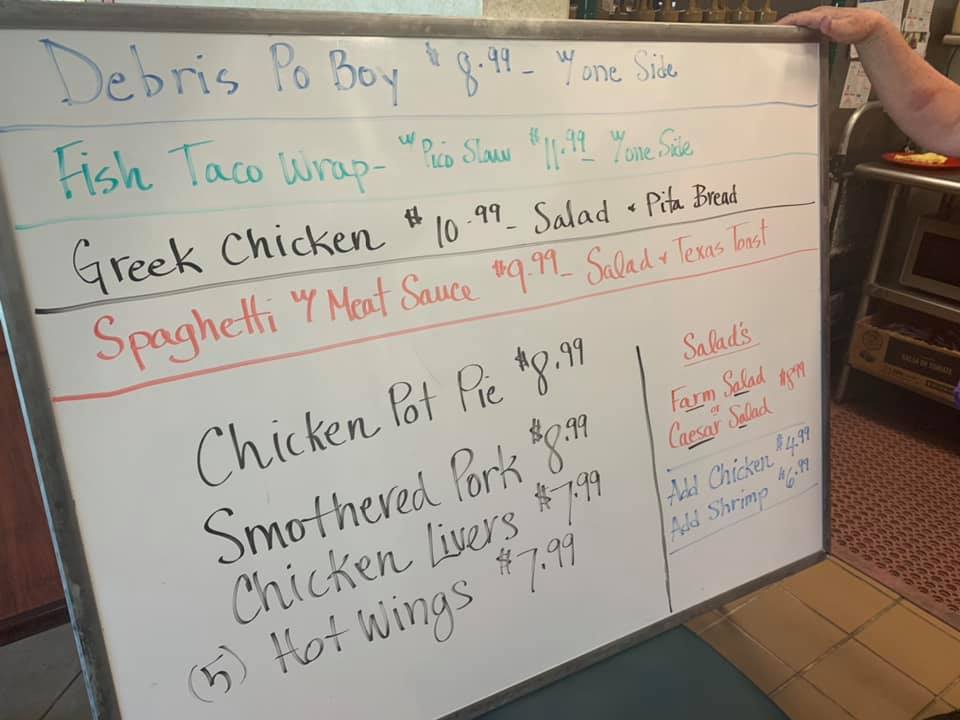 Debris Po Boy $8.99 - w/ one Side
Fish Taco Wrap - w/ Pico Slaw $11.99 - w/ one Side
Greek Chicken $10.99 - Salad + Pita Bread
Spaghetti w/ Meat Sauce $9.99 - Salad + Texas Toast
Chicken Pot Pie $8.99
Smothered Pork $8.99
Chicken Livers $7.99
(5) Hot Wings $7.99
Salad's
Farm Salad $8.99
or
Caesar Salad
Add Chicken $4.99
Add Shrimp $6.99